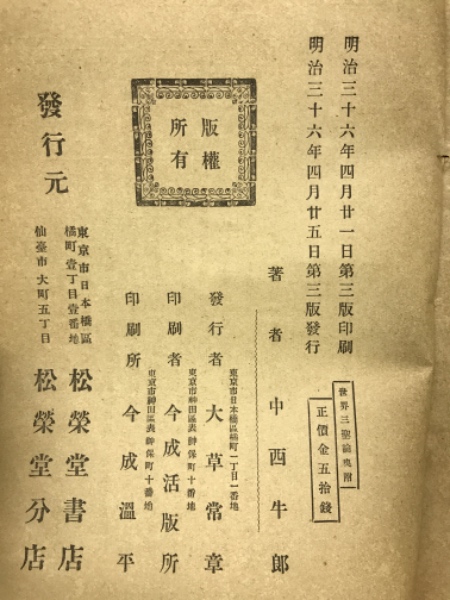 明治三十六年四月廿一日第三版印刷
明治三十六年四月廿五日第三版發行
世界三聖論奥附
正價金五拾錢
著者 中西牛郎
版權
所有
東京市日本橋區橘町一丁目一番地
發行者 大草常章
東京市神田區表神保町十番地
印刷者 今成活版所
東京市神田區表神保町十番地
印刷所 今成溫平
發行元
東京市日本橋區
橘町壹丁目壹番地
松榮堂書店
仙臺市大町五丁目 松榮堂分店